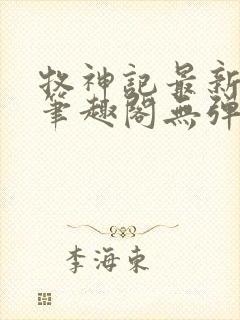 牧神記最新
筆趣閣無彈
李海東